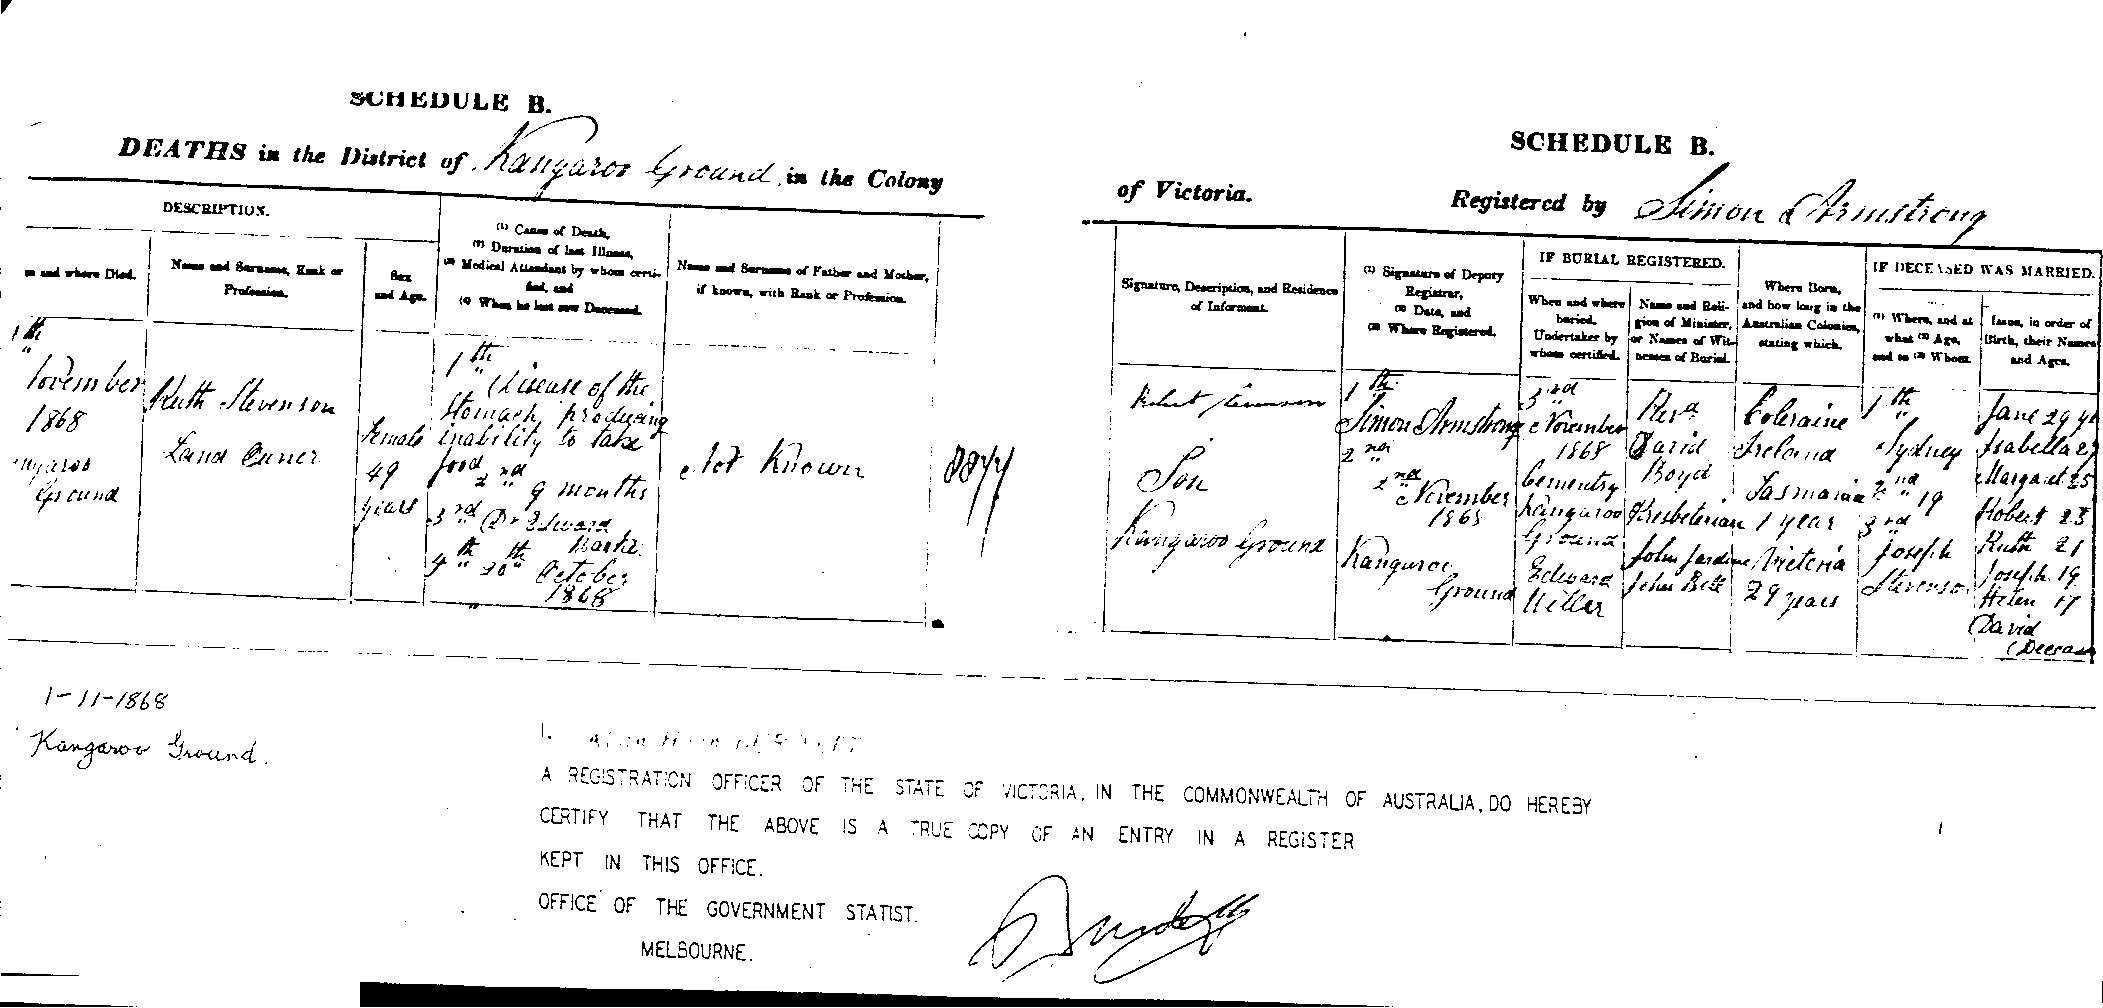 SCHEDULE B.
DEATHS in the District of Kangaroo Ground in the Colony
DESCRIPTION.
and where Died.
Name and Surname, Rank or
Profession.
Sex
and Age.
(1) Cause of Death,
(2) Duration of last Illness,
(3) Medical Attendant by whom certi-
fied, and
(4) When he last saw Deceased.
Name and Surname of Father and Mother,
if known, with Rank or Profession.
1th
November
1868
Ground
Ruth Stevenson
Land Owner
Female
49
years
1th
Disease of the
Stomach producing
inability to take
food
2nd 9 months
3rd Dr Edward
Barker
4th 30th October
1868
Not Known
8844
SCHEDULE B.
of Victoria. Registered by Simon Armstrong
Signature, Description, and Residence
of Informant.
(1) Signature of Deputy
Registrar,
(2) Date, and
(3) Where Registered.
IF BURIAL REGISTERED.
When and where
buried.
Undertaker by
whom certified.
Name and Reli-
gion of Minister,
or Names of Wit-
nesses of Burial.
Where Born,
and how long in the
Australian Colonies,
stating which.
IF DECEASED WAS MARRIED.
(1) Where, and at
what (2) Age,
and to (3) Whom.
Issue, in order of
Birth, their Names
and Ages.
Robert Stevenson
Son
Kangaroo Ground
1th
Simon Armstrong
2nd
2nd
November
1868
Kangaroo
Ground
3rd
November
1868
Cementry
Kangaroo
Ground
Edward
Miller
Revd
David
Boyd
Presbeterian
John Jardine
John Bell
Coleraine
Ireland
Tasmania
1 year
Victoria
29 years
1th
Sydney
2nd 19
3rd
Joseph
Stevenson
Jane 29
Isabella 27
Margaret 25
Robert 23
Ruth 21
Joseph 19
Helen 17
David
1-11-1868
Kangaroo Ground.
I,
A REGISTRATION OFFICER OF THE STATE OF VICTORIA, IN THE COMMONWEALTH OF AUSTRALIA, DO HEREBY
CERTIFY THAT THE ABOVE IS A TRUE COPY OF AN ENTRY IN A REGISTER
KEPT IN THIS OFFICE.
OFFICE OF THE GOVERNMENT STATIST.
MELBOURNE.